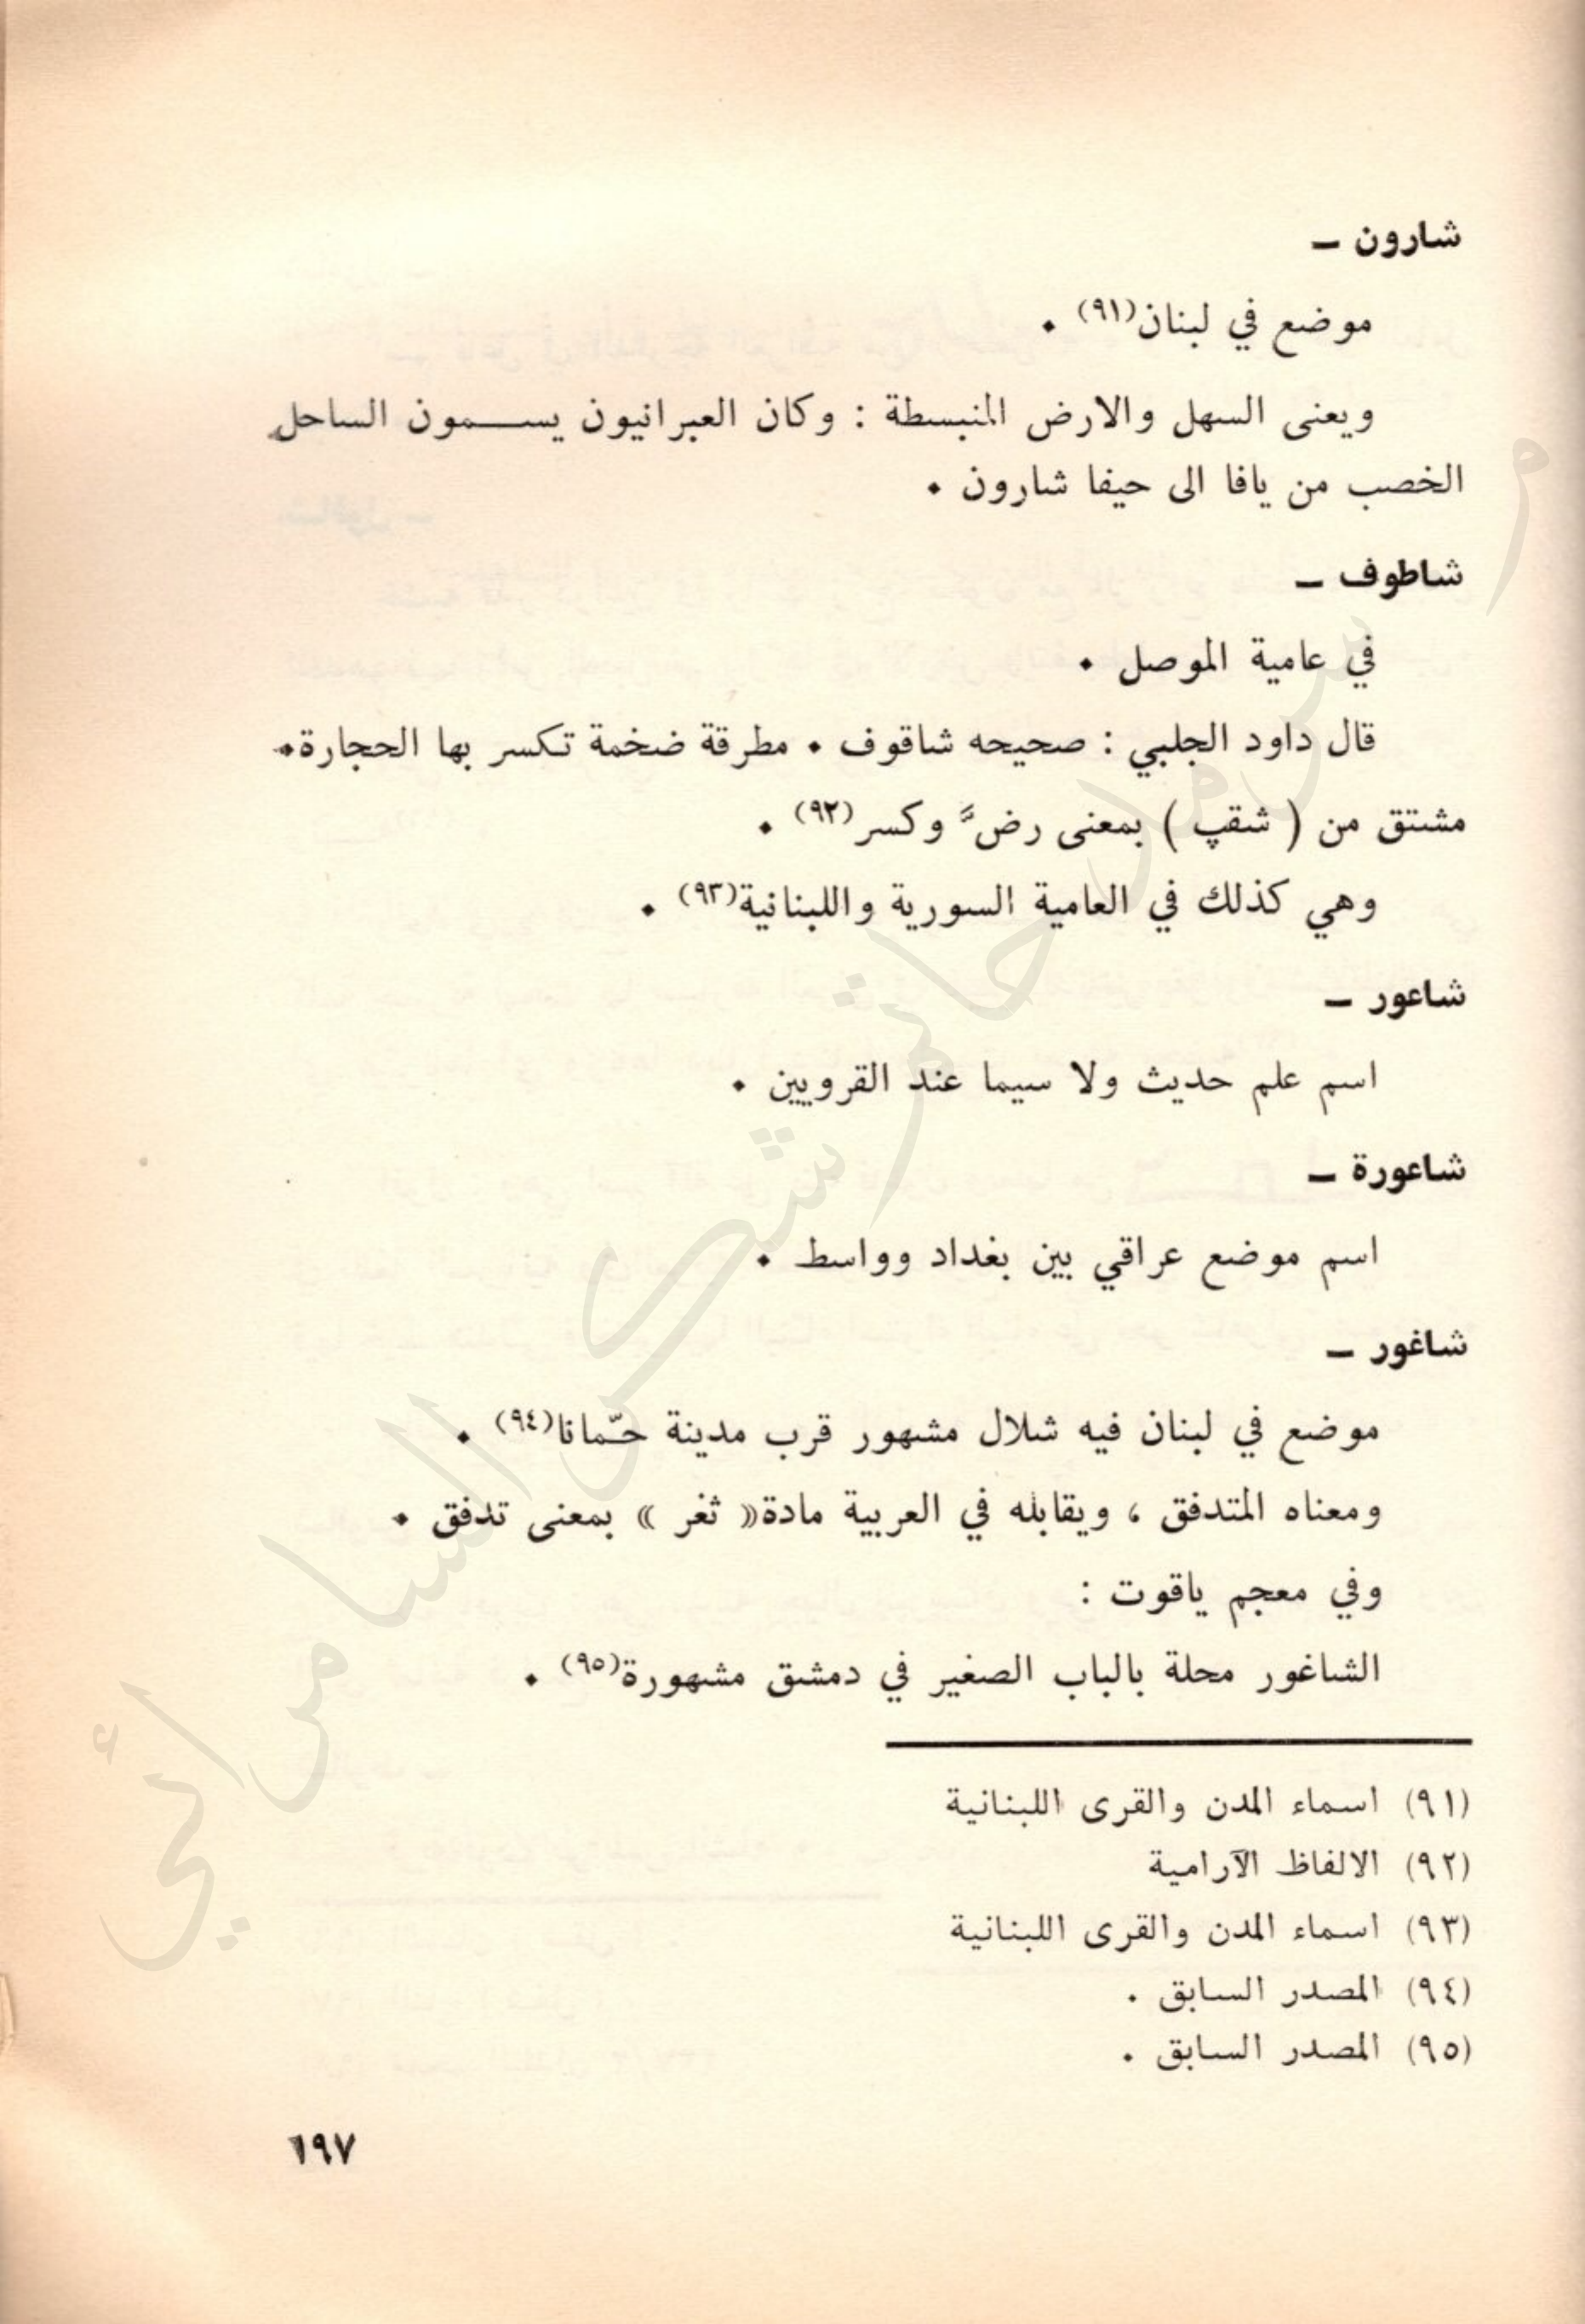 شارون –
موضع في لبنان(٩١) .
ويعنى السهل والارض المنبسطة : وكان العبرانيون يســـمون الساحل
الخصب من يافا الى حيفا شارون .
شاطوف –
في عامية الموصل .
قال داود الجلبي : صحيحه شاقوف . مطرقة ضخمة تكسر بها الحجارة.
مشتق من ( شقپ ) بمعنى رضَّ وكسر(٩٢) .
وهي كذلك في العامية السورية واللبنانية(٩٣) .
شاعور –
اسم علم حديث ولا سيما عند القرويين .
شاعورة –
اسم موضع عراقي بين بغداد وواسط .
شاغور –
موضع في لبنان فيه شلال مشهور قرب مدينة حمّانا(٩٤) .
ومعناه المتدفق ، ويقابله في العربية مادة« ثغر » بمعنى تدفق .
وفي معجم ياقوت :
الشاغور محلة بالباب الصغير في دمشق مشهورة(٩٥) .
(٩١) اسماء المدن والقرى اللبنانية
(٩٢) الالفاظ الآرامية
(٩٣) اسماء المدن والقرى اللبنانية
(٩٤) المصدر السابق .
(٩٥) المصدر السابق .
١٩٧